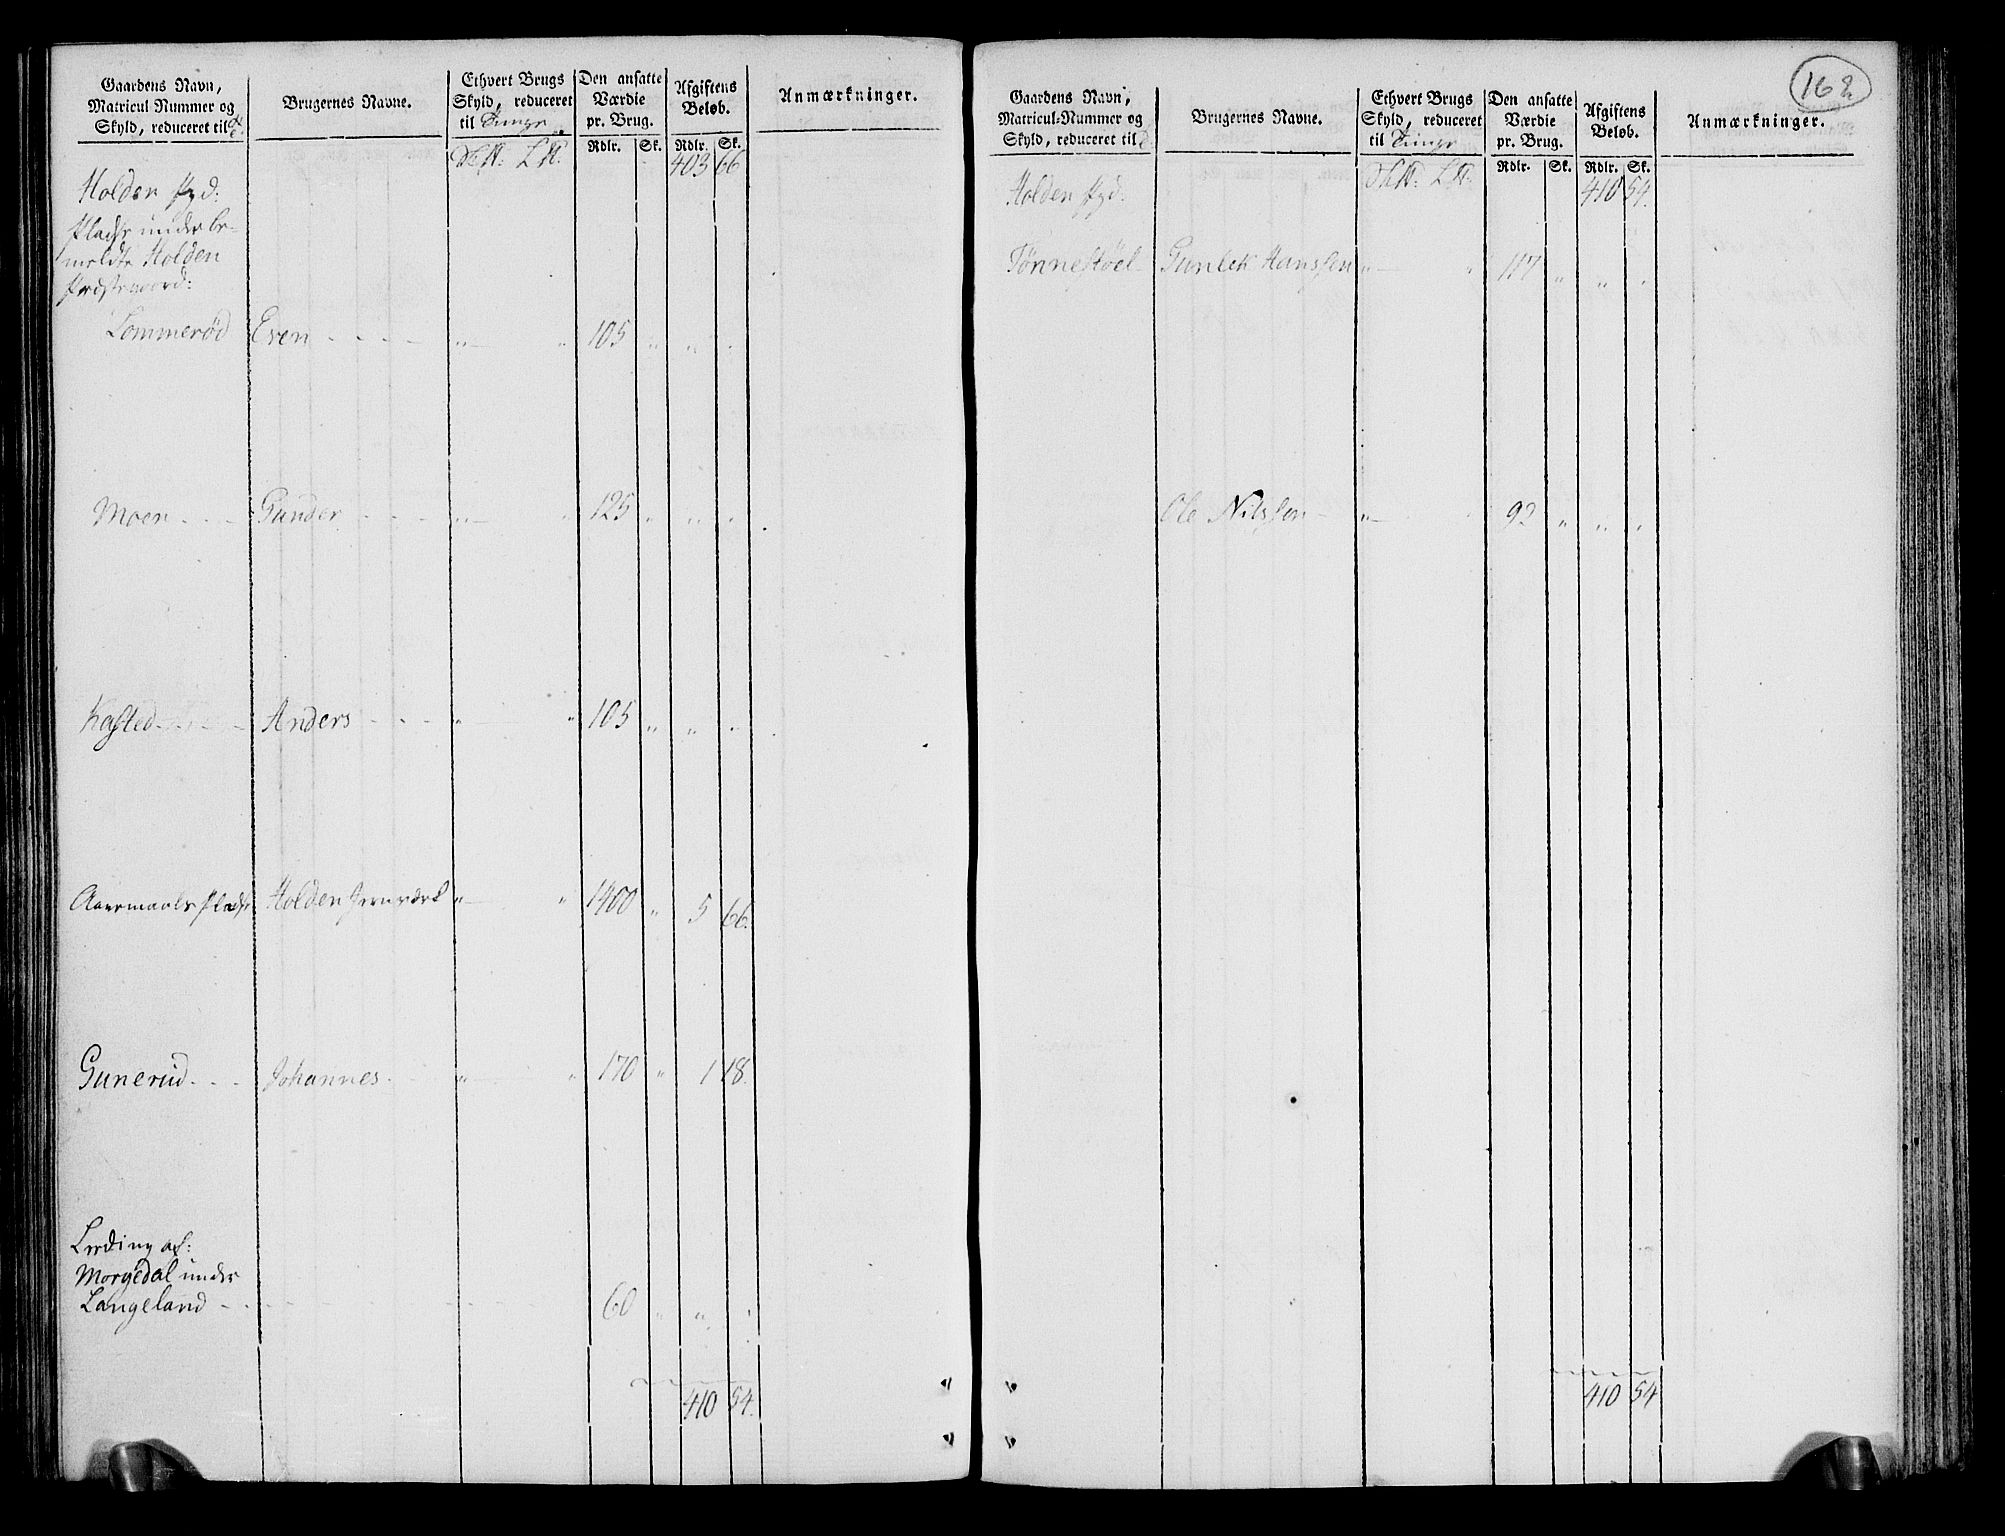 Gaardens Navn,
Matricul Nummer og
Skyld, reduceret til
Brugernes Navne.
Ethvert Brugs
Skyld, reduceret
til Tunge
Den ansatte
Værdie
pr. Brug.
Rdlr. Sk.
Afgiftens
Beløb.
Rdlr. Sk.
Anmærkninger.
403 66
Holden
Pladse under be-
meldte Holden
Præstegaard:
Lommerød Even - - - - " " 105 " " "
Moen - - - Gunder - - - " " 125 " " "
Kasted - - - - Anders - - - " " 105 " " "
Aaermaals Pladse Holden Jernværk " " 1400 " 5 66.
Gunerud - - - Johannes - - " " 170 " 1 18.
Leding af:
Morgedal under
Langeland - - - - - - - 60 " " "
410 54.
162
Gaardens Navn,
Matricul-Nummer og
Skyld, reduceret til
Brugernes Navne.
Ethvert Brugs
Skyld, reduceret
til Tunge
Den ansatte
Værdie
pr. Brug.
Rdlr. Sk.
Afgiftens
Beløb.
Rdlr. Sk.
Anmærkninger.
Holden 410 54.
Tønnestøel Gunlek Hanssen " " 117 " " "
Ole Nilssen - " " 92 " " "
410 54